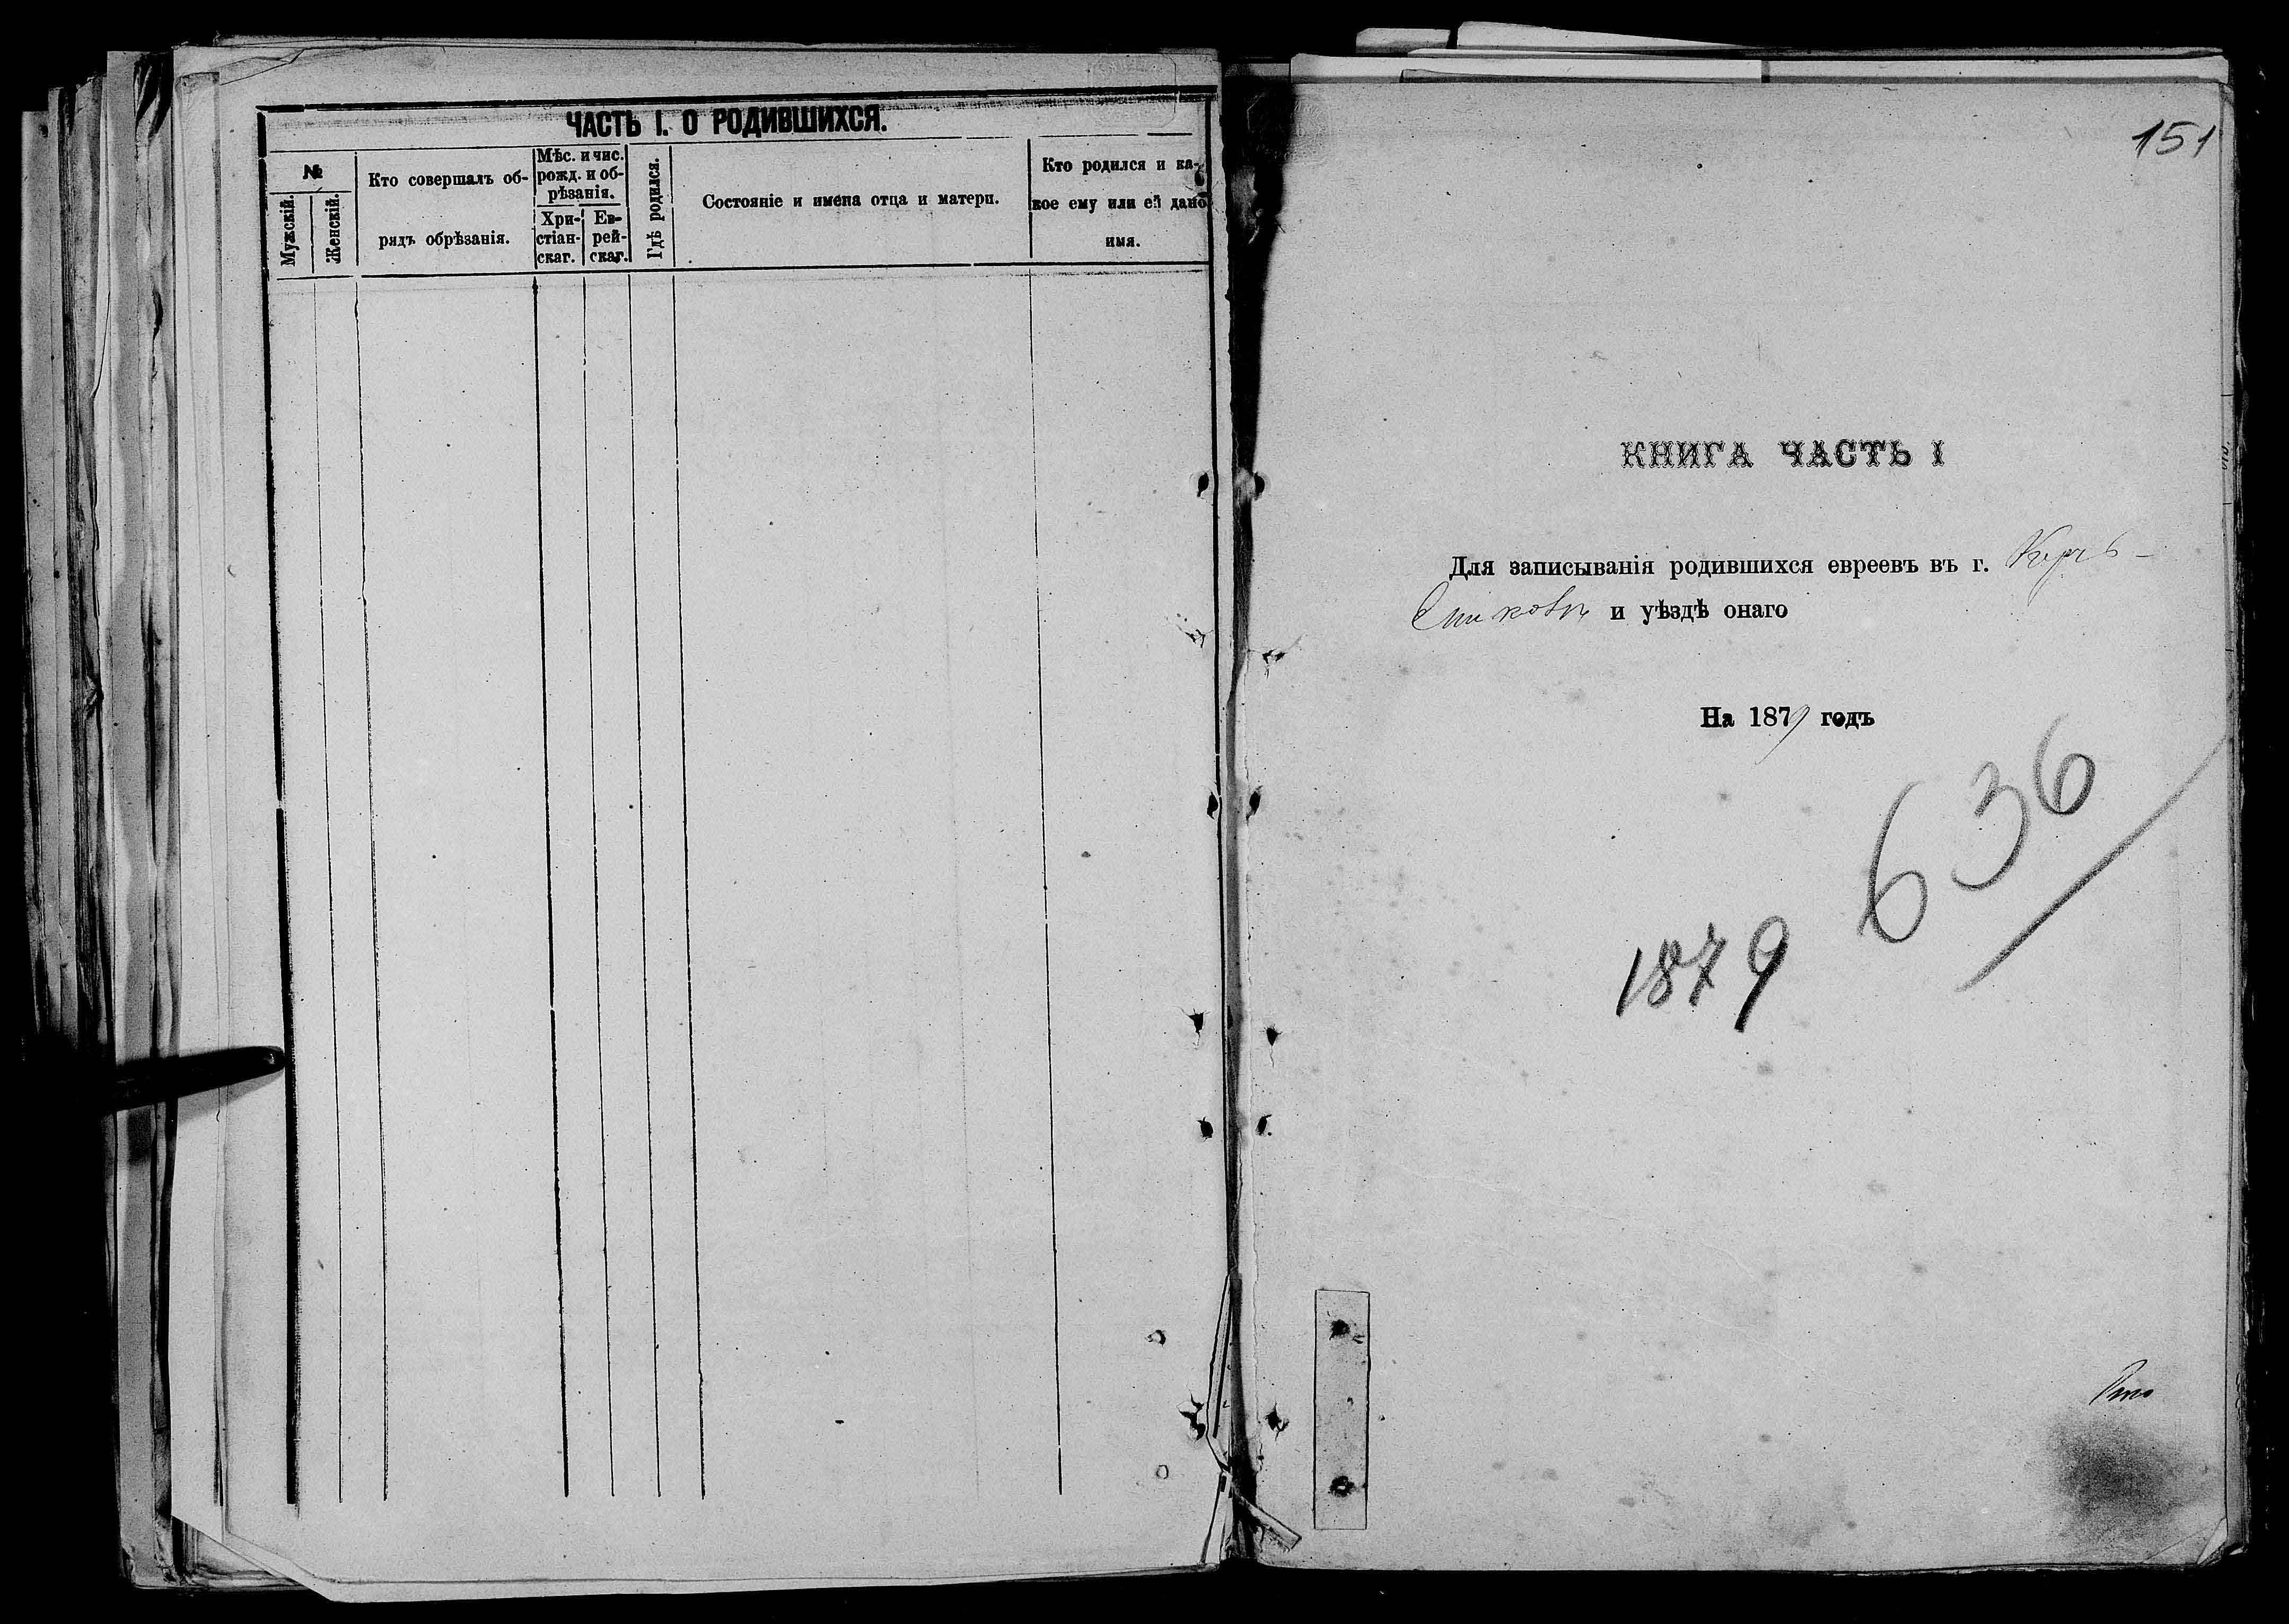 ЧАСТЬ I. О РОДИВШИХСЯ.
№
Мужскій.
Женскій.
Кто совершалъ об-
рядъ обрѣзанія.
Мѣс. и чис.
рожд. и об-
рѣзанія.
Хри-
стіан-
скаг.
Ев-
рей-
скаг.
Гдѣ родился.
Состояніе и имена отца и матери.
Кто родился и ка-
кое ему или ей дано
имя.
151
КНИГА ЧАСТЬ I
Для записыванія родившихся евреевъ въ г. Керчь-
Ениколь и уѣздѣ онаго
На 1879 годъ
636
1879